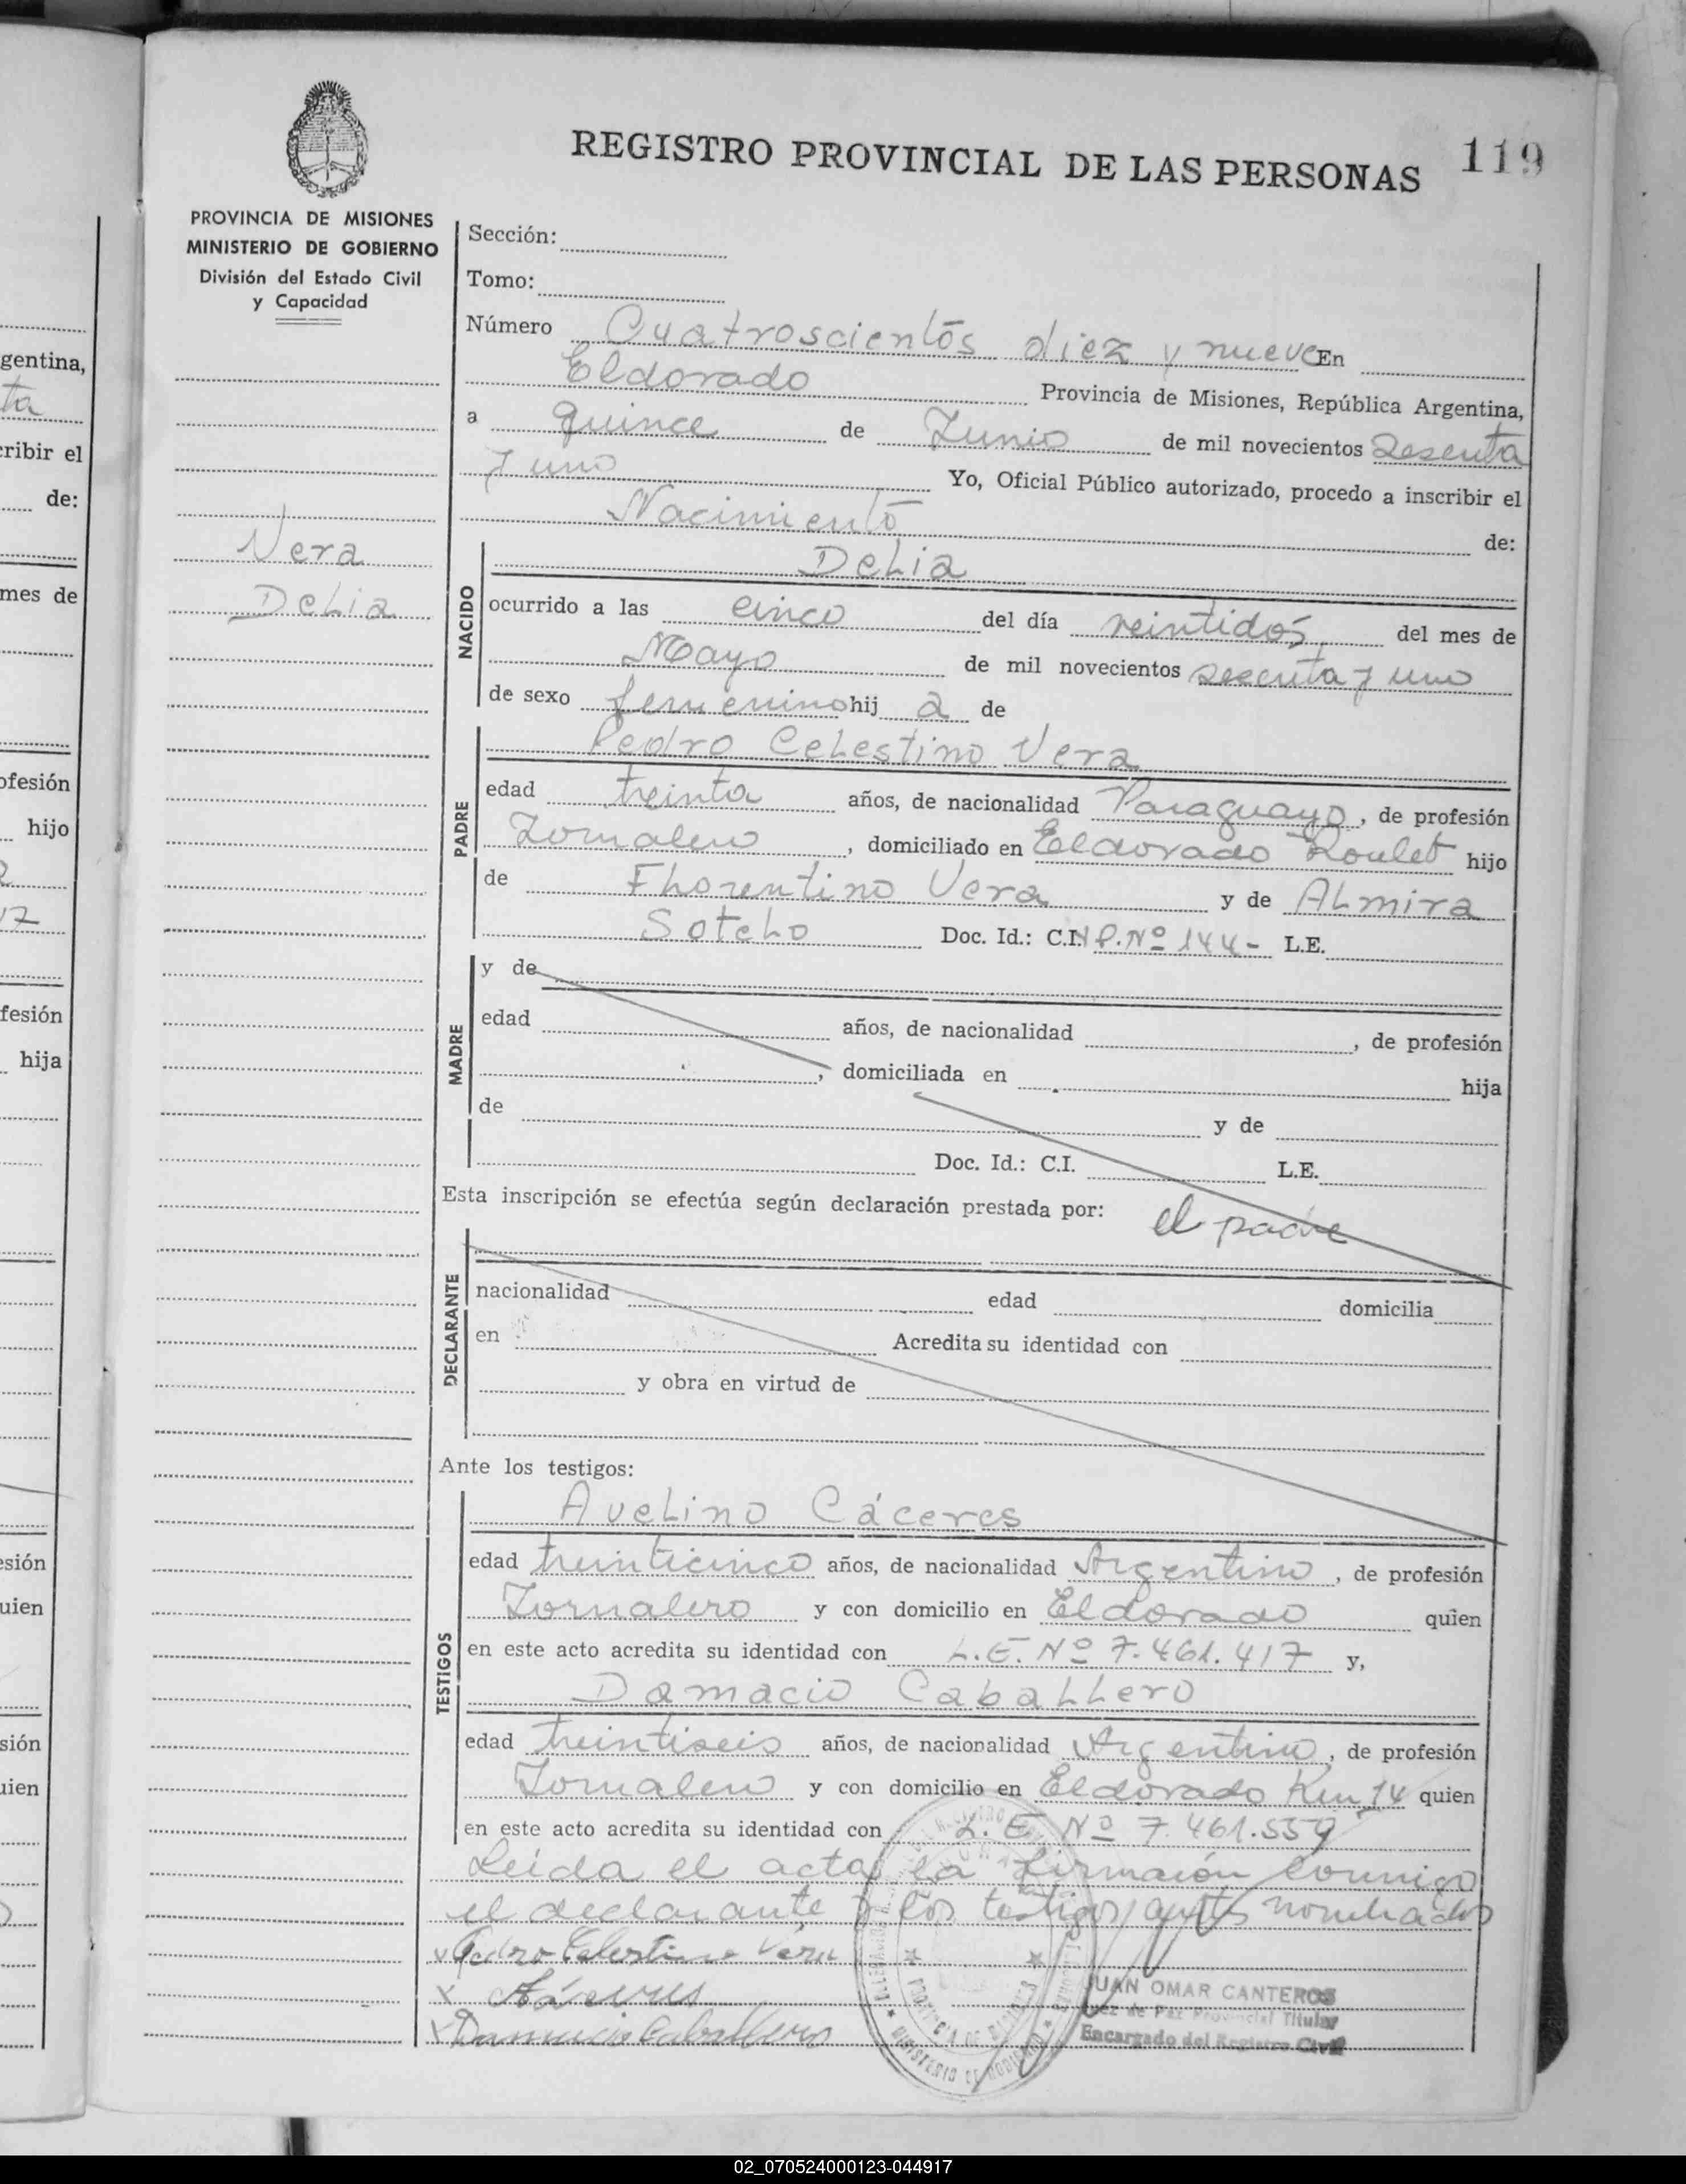 REGISTRO PROVINCIAL DE LAS PERSONAS 119
PROVINCIA DE MISIONES
MINISTERIO DE GOBIERNO
División del Estado Civil
y Capacidad
Vera
Delia
Sección:
Tomo:
Número Cuatroscientos diez y nueve En
Eldorado Provincia de Misiones, República Argentina,
a quince de Junio de mil novecientos Sesenta
y uno Yo, Oficial Público autorizado, procedo a inscribir el
Nacimiento de:
NACIDO
Delia
ocurrido a las cinco del día veintidos del mes de
Mayo de mil novecientos sesenta y uno
de sexo femenino hij a de
PADRE
Pedro Celestino Vera
edad treinta años, de nacionalidad Paraguayo, de profesión
Jornalero, domiciliado en Eldorado Roulet hijo
de Florentino Vera y de Almira
Sotelo Doc. Id.: C.I. P. Nº 144- L.E.
MADRE
y de
edad años, de nacionalidad , de profesión
, domiciliada en hija
de y de
Doc. Id.: C.I. L.E.
Esta inscripción se efectúa según declaración prestada por: el padre
DECLARANTE
nacionalidad edad domicilia
en Acredita su identidad con
y obra en virtud de
Ante los testigos:
TESTIGOS
Avelino Cáceres
edad treinticinco años, de nacionalidad Argentino, de profesión
Jornalero y con domicilio en Eldorado quien
en este acto acredita su identidad con L.E. Nº 7.461.417 y,
Damacio Caballero
edad treintiseis años, de nacionalidad Argentino, de profesión
Jornalero y con domicilio en Eldorado Km 14 quien
en este acto acredita su identidad con L.E. Nº 7.461.559
Leida el acta la firmaron conmigo
el declarante y los testigos antes nombrados
x Pedro Celestino Vera
x Cáceres
x Damacio Caballero
JUAN OMAR CANTEROS
Juez de Paz Provincial Titular
Encargado del Registro Civil
PROVINCIA DE MISIONES
MINISTERIO DE GOBIERNO
gentina,
ta
cribir el
de:
mes de
ofesión
hijo
17
fesión
hija
esión
uien
sión
uien
02_070524000123-044917